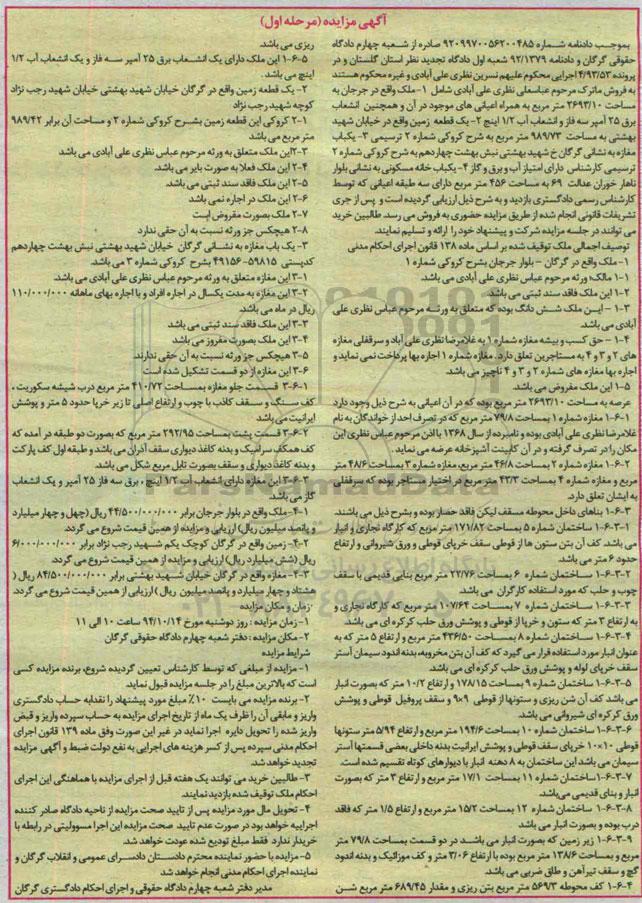 آگهی مزایده (مرحله اول)
بموجب دادنامه شماره ۹۲۰۹۹۷۰۰۵۶۲۰۰۴۸۵ صادره از شعبه چهارم دادگاه
حقوقی گرگان و دادنامه ۹۲/۱۳۷۹ شعبه اول دادگاه تجدید نظر استان گلستان و در
پرونده ۴/۹۳/۵۳ اجرایی محکوم علیهم نسرین نظری علی آبادی و غیره محکوم هستند
به فروش ماترک مرحوم عباسعلی نظری علی آبادی شامل ۱- ملک واقع در جرجان به
مساحت ۲۶۹۳/۱۰ متر مربع به همراه اعیانی های موجود در آن و همچنین انشعاب
برق ۲۵ آمپر سه فاز و انشعاب آب ۱/۲ اینچ ۲- یک قطعه زمین واقع در خیابان شهید
بهشتی به مساحت ۹۸۹/۷۳ متر مربع به شرح کروکی شماره ۲ ترسیمی ۳- یکباب
مغازه به نشانی گرگان خ شهید بهشتی نبش بهشت چهاردهم به شرح کروکی شماره ۲
ترسیمی کارشناس دارای امتیاز آب و برق و گاز ۴- یکباب خانه مسکونی به نشانی بلوار
ناهار خوران عدالت ۶۹ به مساحت ۴۵۶ متر مربع دارای سه طبقه اعیانی که توسط
کارشناس رسمی دادگستری بازدید و به شرح ذیل ارزیابی گردیده است و پس از جری
تشریفات قانونی انجام شده از طریق مزایده حضوری به فروش می رسد. طالبین خرید
می توانند در جلسه مزایده شرکت و پیشنهاد خود را ارائه و تسلیم نمایند.
توصیف اجمالی ملک توقیف شده بر اساس ماده ۱۳۸ قانون اجرای احکام مدنی
۱- ملک واقع در گرگان – بلوار جرجان بشرح کروکی شماره ۱
۱-۱ مالک: ورثه مرحوم عباس نظری علی آبادی می باشد.
۱-۲ این ملک فاقد سند ثبتی می باشد.
۱-۳ - این ملک شش دانگ بوده که متعلق به ورثه مرحوم عباس نظری علی
آبادی می باشد.
۱-۴ - حق کسب و پیشه مغازه شماره ۱ به غلامرضا نظری علی آباد و سرقفلی مغازه
های ۲ و ۳ و ۴ به مستاجرین تعلق دارد. مغازه شماره ۱ اجاره بها پرداخت نمی نماید و
اجاره بها مغازه های شماره ۲ و ۳ و ۴ ناچیز می باشد.
۱-۵ این ملک مفروض می باشد.
عرصه به مساحت ۲۶۹۳/۱۰ متر مربع بوده که در آن اعیانی به شرح ذیل وجود دارد
۱-۶-۱ مغازه شماره ۱ بمساحت ۷۹/۸ متر مربع که در تصرف احد از خواندگان به نام
غلامرضا نظری علی آبادی بوده و نامبرده از سال ۱۳۶۸ با اذن مرحوم عباس نظری این
مکان را در تصرف گرفته و در آن کابینت آشپزخانه عرضه می نماید.
۱-۶-۲ مغازه شماره ۲ بمساحت ۴۶/۸ متر مربع، مغازه شماره ۳ بمساحت ۴۸/۶ متر
مربع و مغازه شماره ۴ بمساحت ۴۳/۳ متر مربع در اختیار مستاجر بوده که سرقفلی
به ایشان تعلق دارد.
۱-۶-۳ بناهای داخل محوطه مسقف لیکن فاقد حصار بوده و بشرح ذیل می باشند.
۱-۶-۳-۱ ساختمان شماره ۵ بمساحت ۱۷۱/۸۲ متر مربع که کارگاه نجاری و انبار
می باشد. کف آن بتن ستون ها از قوطی سقف خرپای قوطی و ورق شیروانی و ارتفاع
حدود ۶ متر می باشد.
۱-۶-۳-۲ ساختمان شماره ۶ بمساحت ۲۲/۷۶ متر مربع بنایی قدیمی با سقف
چوب و حلب که مورد استفاده کارگران می باشد.
۱-۶-۳-۳ ساختمان شماره ۷ بمساحت ۱۰۷/۶۴ متر مربع که کارگاه نجاری و
به ارتفاع ۳ متر که ستون و خرپا از قوطی و پوشش ورق حلب کرکره ای می باشد.
۱-۶-۳-۴ ساختمان شماره ۸ بمساحت ۴۳۶/۵۰ متر مربع و ارتفاع ۵ متر که به
عنوان انبار مورد استفاده قرار می گیرد که کف آن بتن مخروبه، بدنه اندود سیمان آستر
سقف خرپای لوله و پوشش ورق حلب کرکره ای می باشد.
۱-۶-۳-۵ ساختمان شماره ۹ بمساحت ۱۷۸/۱۵ و ارتفاع ۱۰/۲ متر که بصورت انبار
می باشد کف آن شن ریزی و ستونها از قوطی ۹×۹ و سقف پروفیل قوطی و پوشش
ورق کرکره ای شیروانی می باشد.
۱-۶-۳-۶ ساختمان شماره ۱۰ بمساحت ۱۹۴/۶ متر مربع و ارتفاع ۵/۹۴ متر ستونها
قوطی ۱۰×۱۰ خرپای سقف قوطی و پوشش ایرانیت بدنه داخلی بعضی قسمتها آستر
سیمان می باشد این ساختمان به ۸ دهنه انبار با دیوارهای کوتاه تقسیم شده است.
۱-۶-۳-۷ ساختمان شماره ۱۱ بمساحت ۱۷/۱ متر مربع و ارتفاع ۳ متر که بصورت
انبار و بنای قدیمی می باشد.
۱-۶-۳-۸ ساختمان شماره ۱۲ بمساحت ۱۵/۲ متر مربع و ارتفاع ۱/۵ متر که فاقد
درب بوده و بصورت انبار می باشد.
۱-۶-۳-۹ زیر زمین که بصورت انبار می باشد در دو قسمت بمساحت ۷۹/۸ متر
مربع و بمساحت ۱۳۸/۶ متر مربع بوده با ارتفاع ۳/۰۶ متر و کف موزائیک و بدنه اندود
گچ و سقف تیرآهن و طاق ضربی می باشد.
۱-۶-۴ کف محوطه ۵۶۹/۳ متر مربع بتن ریزی و مقدار ۶۸۹/۴۵ متر مربع شن
ریزی می باشد.
۱-۶-۵ این ملک دارای یک انشعاب برق ۲۵ آمپر سه فاز و یک انشعاب آب ۱/۲
اینچ می باشد.
۲- یک قطعه زمین واقع در گرگان خیابان شهید بهشتی خیابان شهید رجب نژاد
کوچه شهید رجب نژاد
۲-۱ کروکی این قطعه زمین بشرح کروکی شماره ۲ و مساحت آن برابر ۹۸۹/۴۲
متر مربع می باشد
۲-۳ این ملک متعلق به ورثه مرحوم عباس نظری علی آبادی می باشد.
۲-۴ ملک فعلا به صورت بایر می باشد.
۲-۵ این ملک فاقد سند ثبتی می باشد.
۲-۶ این ملک در اجاره نمی باشد
۲-۷ ملک بصورت مفروض است
۲-۸ هیچکس جز ورثه نسبت به آن حقی ندارد
۳- یک باب مغازه به نشانی گرگان خیابان شهید بهشتی نبش بهشت چهاردهم
کدپستی ۵۹۸۱۵-۴۹۱۵۶ بشرح کروکی شماره ۳ می باشد.
۳-۱ این مغازه متعلق به ورثه مرحوم عباس نظری علی آبادی می باشد.
۳-۲ این مغازه به مدت یکسال در اجاره افراد و با اجاره بهای ماهانه ۱۱۰/۰۰۰/۰۰۰
ریال در ماه می باشد.
۳-۳ این ملک فاقد سند ثبتی می باشد
۳-۴ این ملک بصورت مفروز می باشد
۳-۵ هیچکس جز ورثه نسبت به آن حقی ندارند.
۳-۶ این مغازه از دو قسمت تشکیل شده است
۳-۶-۱ قسمت جلو مغازه بمساحت ۴۱۰/۷۲ متر مربع درب شیشه سکوریت،
کف سنگ و سقف کاذب با چوب و ارتفاع اصلی تا زیر خرپا حدود ۵ متر و پوشش
ایرانیت می باشد
۳-۶-۲ قسمت پشت بمساحت ۲۹۲/۹۵ متر مربع که بصورت دو طبقه در آمده که
کف همکف سرامیک و بدنه کاغذ دیواری سقف آذران می باشد و طبقه اول کف پارکت
و بدنه کاغذ دیواری و سقف بصورت تایل مربع شکل می باشد.
۳-۶-۳ این مغازه دارای انشعاب آب ۱/۲ اینچ، برق سه فاز ۲۵ آمپر و یک انشعاب
گاز می باشد.
۴-۱- ملک واقع در بلوار جرجان برابر ۴۴/۵۰۰/۰۰۰/۰۰۰ ریال (چهل و چهار میلیارد
و پانصد میلیون ریال) ارزیابی و مزایده از همین قیمت شروع می گردد.
۴-۲- زمین واقع در گرگان کوچک یکم شهید رجب نژاد برابر ۶/۰۰۰/۰۰۰/۰۰۰
ریال (شش میلیارد ریال) ارزیابی و مزایده از همین قیمت شروع می گردد.
۴-۳- مغازه واقع در گرگان خیابان شهید بهشتی برابر ۸۴/۵۰۰/۰۰۰/۰۰۰ ریال (
هشتاد و چهار میلیارد و پانصد میلیون ریال) ارزیابی از همین قیمت شروع می گردد.
-زمان و مکان مزایده
۱- زمان مزایده: روز دوشنبه مورخ ۹۴/۱۰/۱۴ ساعت ۱۰ الی ۱۱
۲- مکان مزایده: دفتر شعبه چهارم دادگاه حقوقی گرگان
شرایط مزایده
۱- مزایده از مبلغی که توسط کارشناس تعیین گردیده شروع، برنده مزایده کسی
است که بالاترین مبلغ را در جلسه مزایده قبول نماید.
۲- برنده مزایده می بایست ۱۰٪ مبلغ مورد پیشنهاد را نقدا به حساب دادگستری
واریز و مابقی آن را ظرف یک ماه از تاریخ اجرای مزایده به حساب سپرده واریز و قبض
واریز شده را تحویل دایره اجرا نماید در غیر این صورت وفق ماده ۱۳۹ قانون اجرای
احکام مدنی سپرده پس از کسر هزینه های اجرایی به نفع دولت ضبط و آگهی مزایده
تجدید خواهد شد.
۳- طالبین خرید می توانند یک هفته قبل از اجرای مزایده با هماهنگی این اجرای
احکام ملک توقیف شده بازدید نمایند.
۴- تحویل مال مورد مزایده پس از تایید صحت مزایده از ناحیه دادگاه صادر کننده
اجراییه خواهد بود در صورت عدم تایید صحت مزایده این اجرا مسوولیتی در رابطه با
خریدار ندارد فقط مبلغ تودیع شده عودت خواهد شد.
۵- مزایده با حضور نماینده محترم دادستان دادسرای عمومی و انقلاب گرگان و
نماینده اجرای احکام مدنی انجام خواهد شد
مدیر دفتر شعبه چهارم دادگاه حقوقی و اجرای احکام دادگستری گرگان